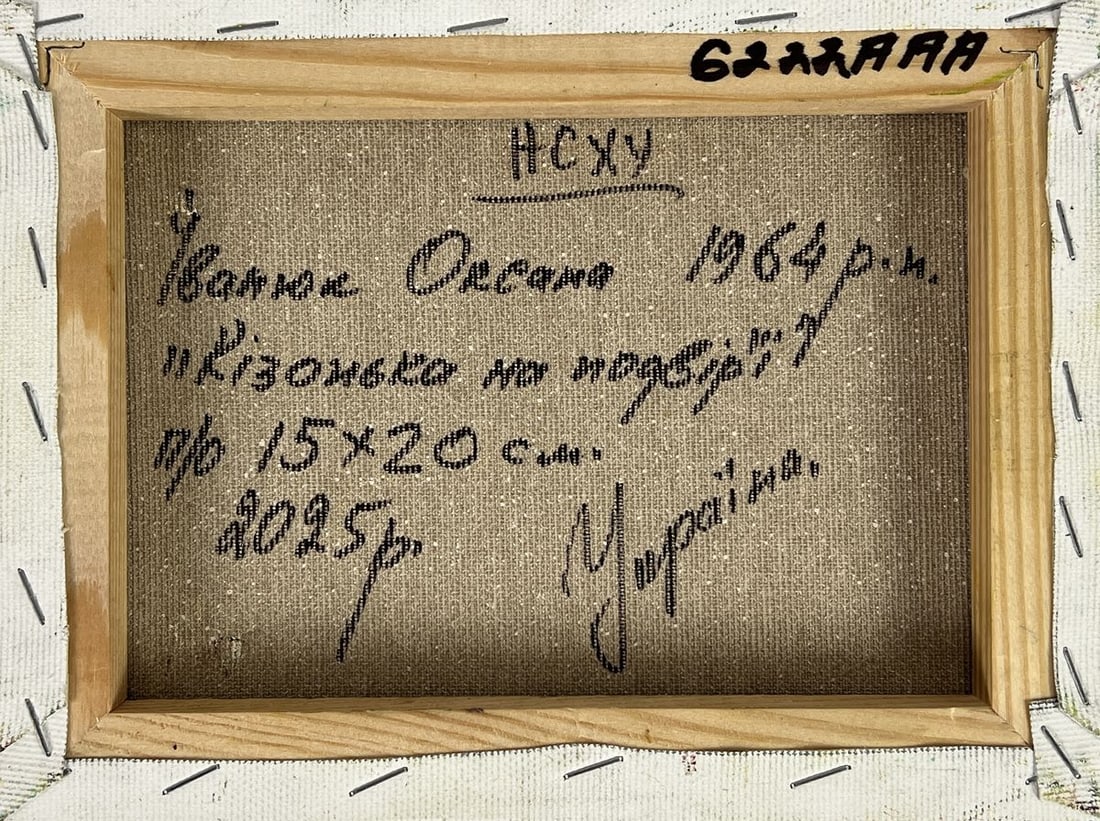 6222AAA
НСХУ
Іванюк Оксана 1964 р.н.
"Кізонька на подвір'ї"
п/о 15×20 см.
2025р.
Україна.